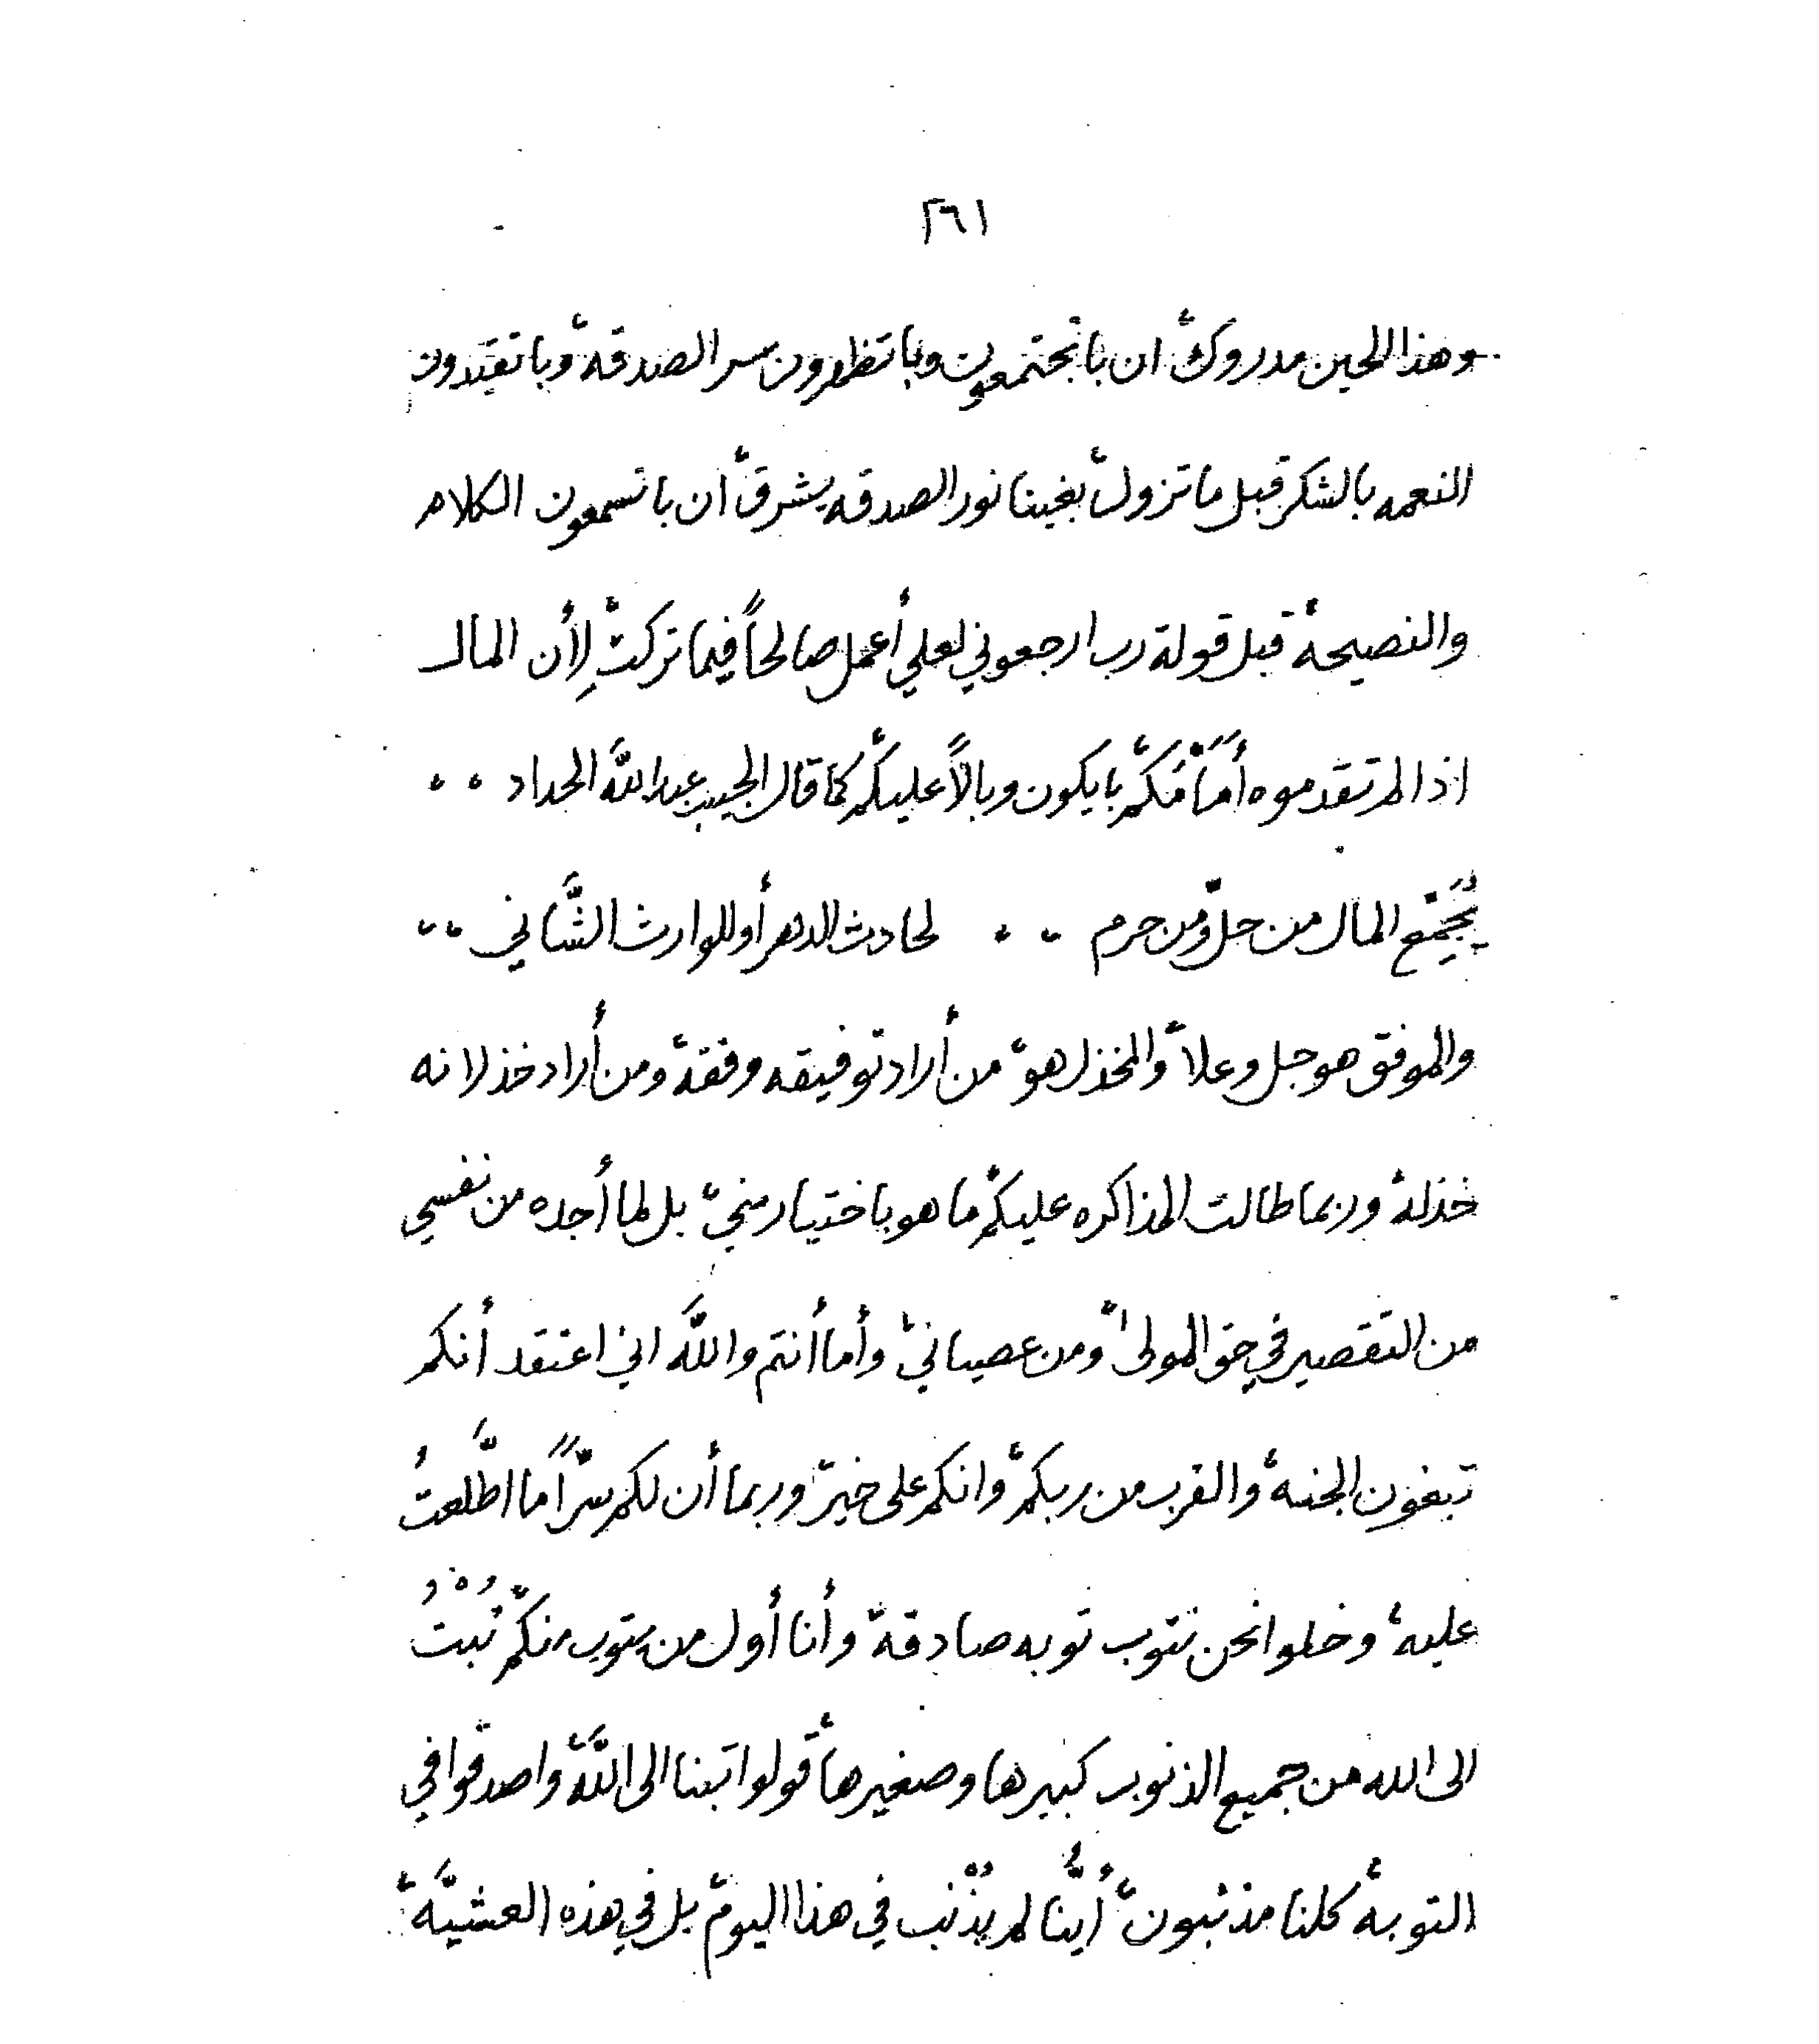 ٢٦١
وهذا الحين مدروك، ان باتجتمعون وباتظهرون سر الصدقة، وباتقيدون
النعمه بالشكر قبل ما تزول، بغينا نور الصدقه يشرق، ان باتسمعون الكلام
والنصيحة، قبل قولة رب ارجعوني لعلي أعمل صالحاً فيما تركت، لِأن المال
اذا لم تقدموه أَمَامَكُم، بايكون وبالاً عليكم، كما قال الحبيب عبد اللَّه الحداد ..
يُجَمِّع المال من حلّ ومن حرم .. لحادث الدهر أو للوارث الشَّاني ..
والموفق هو جل وعلا، والمخذل هو، من أراد توفيقه وفقه، ومن أراد خذلانه
خذله، وربما طالت المذاكره عليكم، ما هو باختيار مني، بل لما أجده من نفسي
من التقصير في حق المولى، ومن عصياني، وأما أنتم واللَّه اني اعتقد أنكم
تبغون الجنة، والقرب من ربكم، وانكم على خير، وربما أن لكم سرّاً ما اطَّلعتُ
عليه، وخلوا نحن نتوب توبه صادقة، وأنا أول من يتوب منكم، تُبْتُ
الى الله من جميع الذنوب كبيرها وصغيرها، قولوا تبنا الى اللَّه، واصدقوا في
التوبة، كلنا مذنبون، أَيُّنا لم يُذْنب في هذا اليوم، بل في هذه العشيَّة،